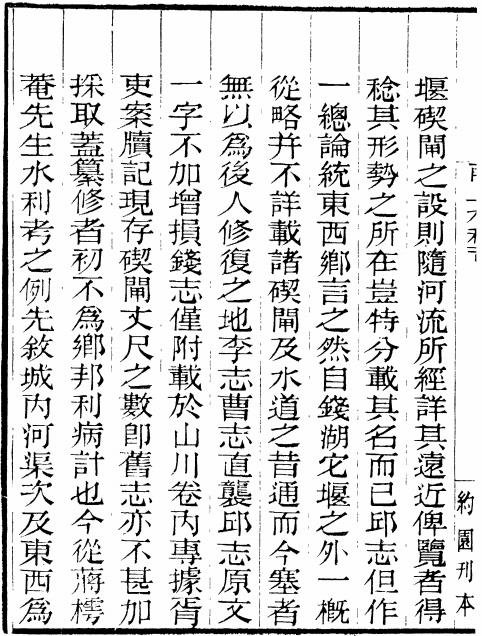 堰碶閘之設則隨河流所經詳其遠近俾覽者得
稔其形勢之所在豈特分載其名而已邱志但作
一總論統東西鄉言之然自錢湖它堰之外一概
從略并不詳載諸碶閘及水道之昔通而今塞者
無以爲後人修復之地李志曹志直襲邱志原文
一字不加增損錢志僅附載於山川卷內專據胥
吏案牘記現存碶閘丈尺之數卽舊志亦不甚加
採取蓋纂修者初不爲鄉邦利病計也今從蔣樗
菴先生水利考之例先敘城內河渠次及東西爲
約園刊本